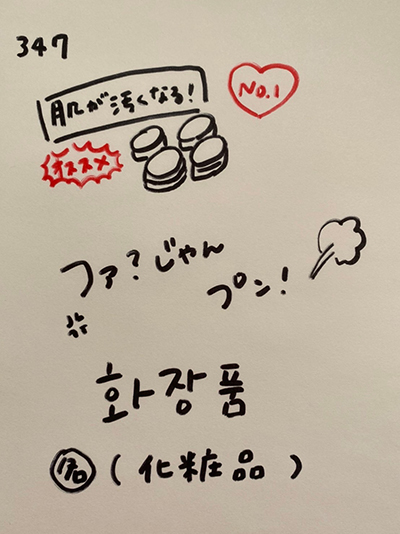 347
No.1
肌が汚くなる!
オススメ
ファ?じゃん
プン!
화장품
(化粧品)